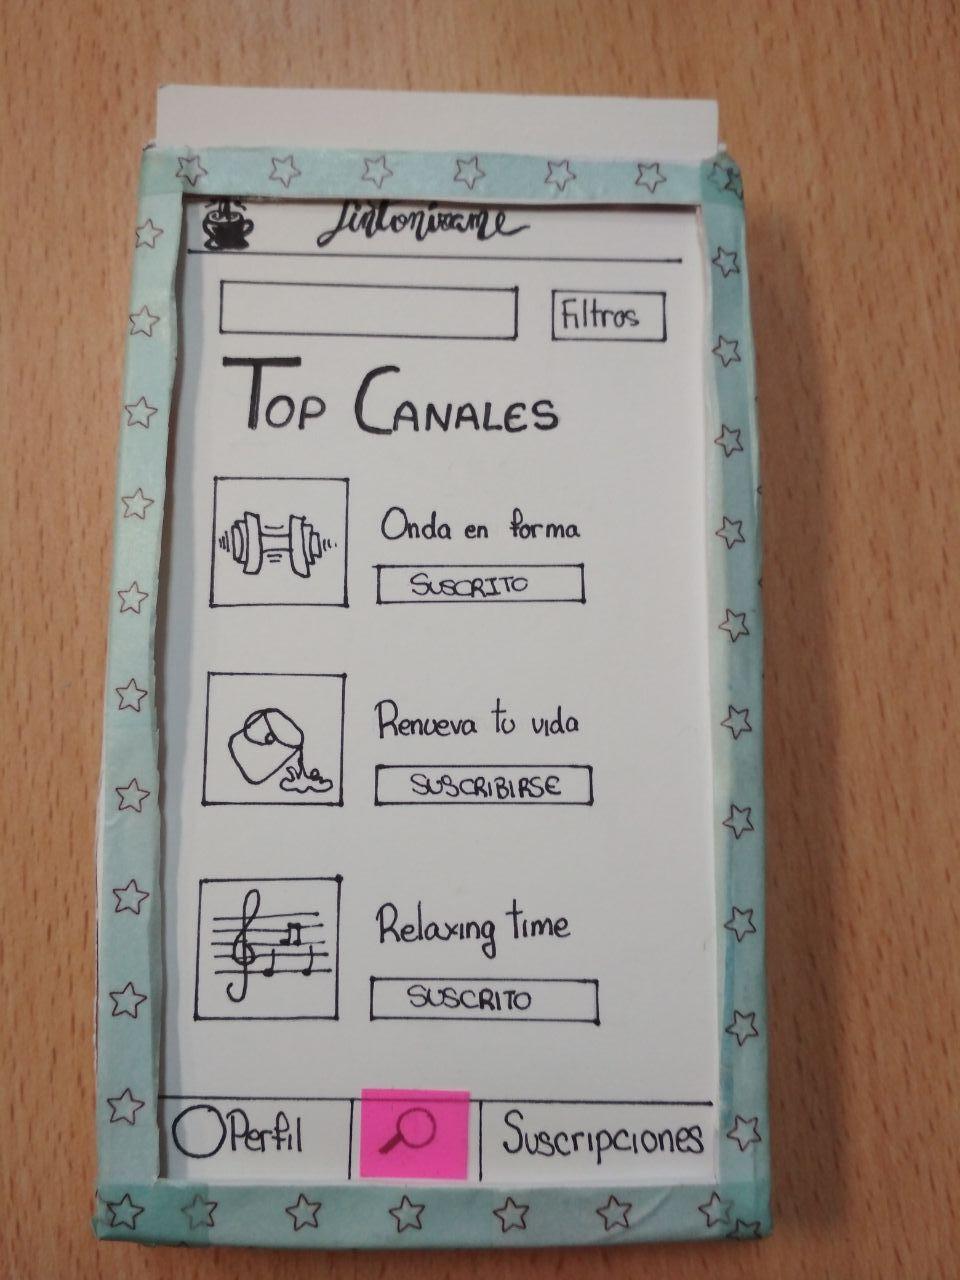 Sintonizame
Filtros
TOP CANALES
Onda en forma
SUSCRITO
Renueva tu vida
SUSCRIBIRSE
Relaxing time
SUSCRITO
Perfil
Suscripciones